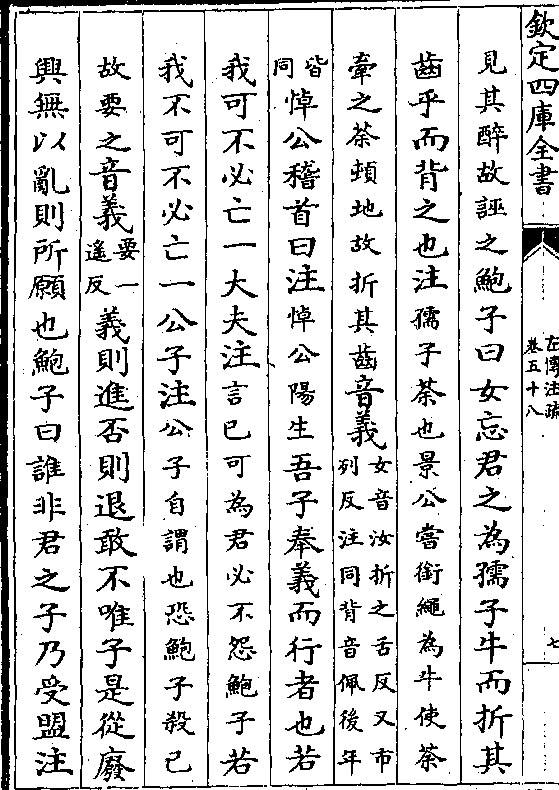 欽定四庫全書
左傳注疏
卷五十八
七
見其醉故誣之鮑子曰女忘君之為孺子牛而折其
齒乎而背之也注孺子荼也景公嘗銜繩為牛使荼
牽之荼頓地故折其齒音義女音汝折之舌反又市列反注同背音佩後年
皆同悼公稽首曰注悼公陽生吾子奉義而行者也若
我可不必亡一大夫注言已可為君必不怨鮑子若
我不可不必亡一公子注公子自謂也恐鮑子殺已
故要之音義要一遙反義則進否則退敢不唯子是從廢
興無以亂則所願也鮑子曰誰非君之子乃受盟注